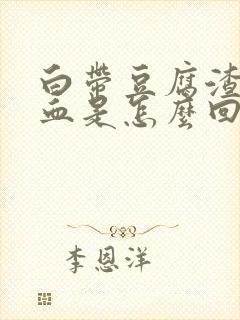 白带豆腐渣
血是怎麼回
李恩洋